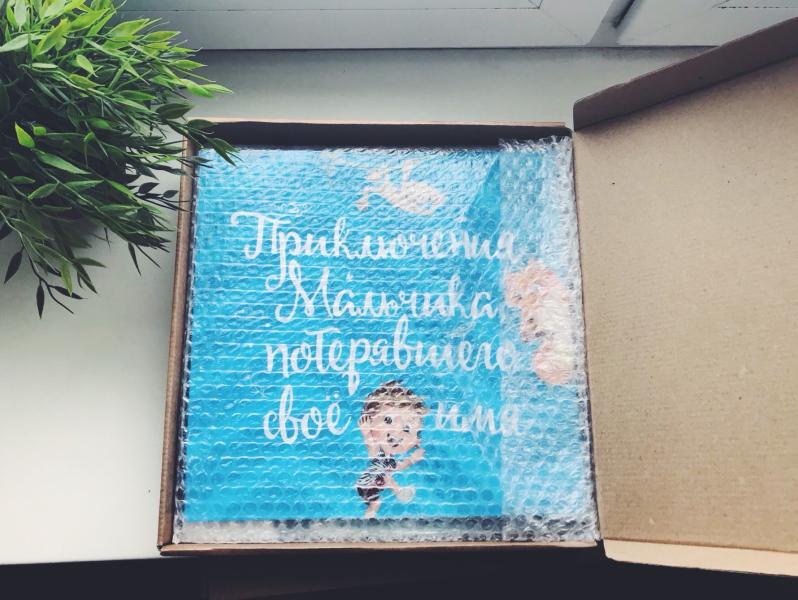 Приключения
Мальчика,
потерявшего
своё имя